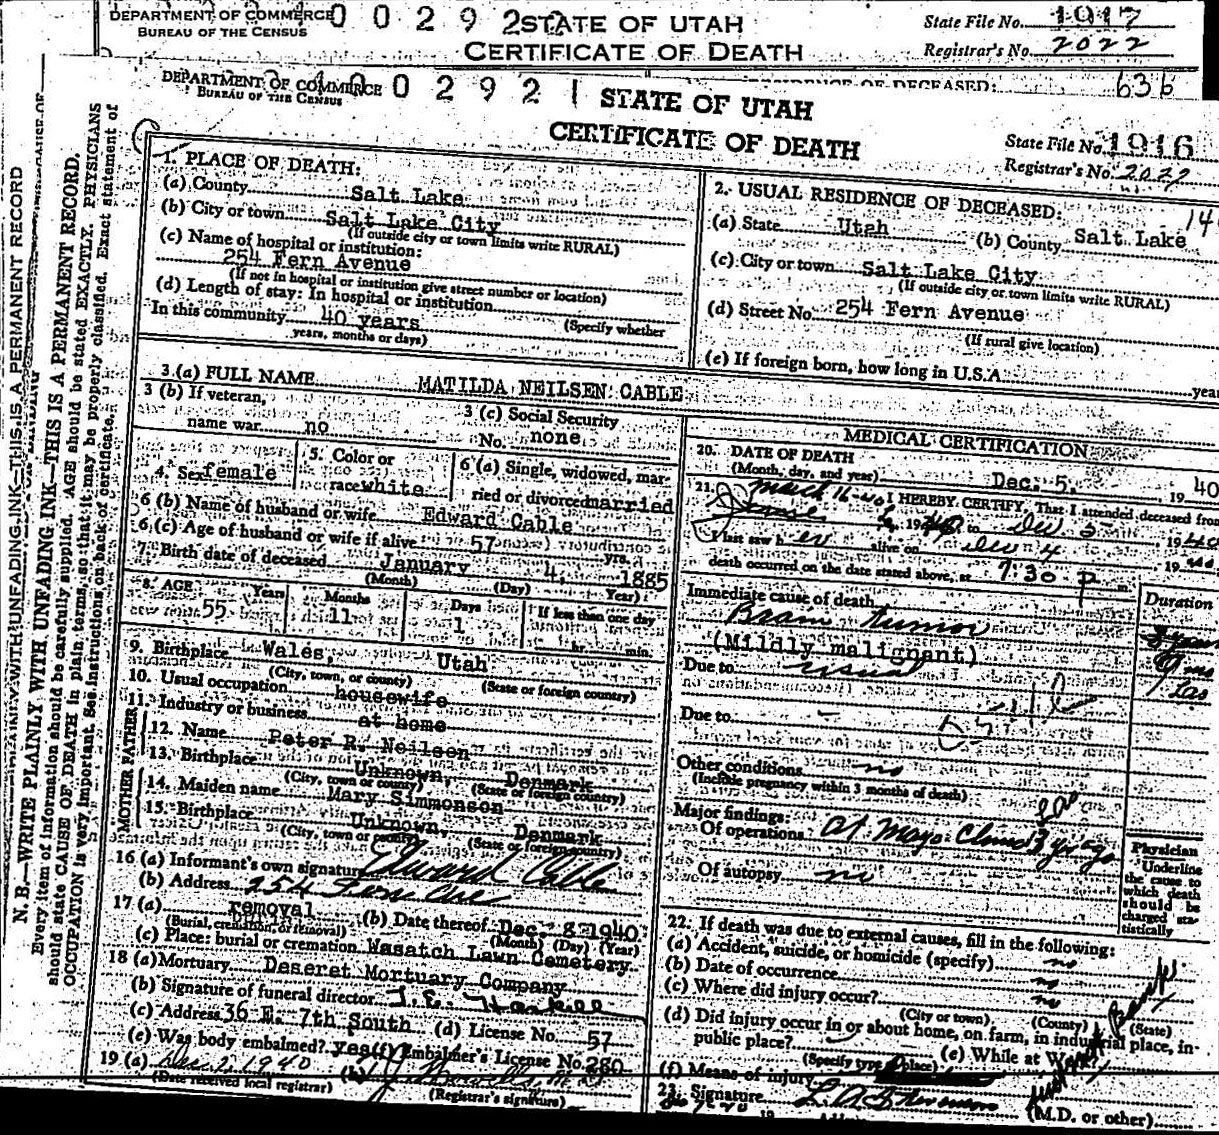 DEPARTMENT OF COMMERCE
BUREAU OF THE CENSUS
0 0 2 9 2 2
STATE OF UTAH
CERTIFICATE OF DEATH
State File No. 1917
Registrar's No. 2022
RESIDENCE OF DECEASED: 636
DEPARTMENT OF COMMERCE
BUREAU OF THE CENSUS
0 2 9 2 1
STATE OF UTAH
CERTIFICATE OF DEATH
State File No. 1916
Registrar's No.
N. B.—WRITE PLAINLY WITH UNFADING INK—THIS IS A PERMANENT RECORD.
Every item of information should be carefully supplied. AGE should be stated EXACTLY. PHYSICIANS
should state CAUSE OF DEATH in plain terms, so that it may be properly classified. Exact statement of
OCCUPATION is very important. See instructions on back of certificate.
1. PLACE OF DEATH:
(a) County Salt Lake
(b) City or town Salt Lake City
(If outside city or town limits write RURAL)
(c) Name of hospital or institution:
254 Fern Avenue
(If not in hospital or institution give street number or location)
(d) Length of stay: In hospital or institution
(Specify whether
In this community 40 years
years, months or days)
2. USUAL RESIDENCE OF DECEASED: 14
(a) State Utah (b) County Salt Lake
(c) City or town Salt Lake City
(If outside city or town limits write RURAL)
(d) Street No. 254 Fern Avenue
(If rural give location)
(e) If foreign born, how long in U.S.A. year
3 (a) FULL NAME MATILDA NEILSEN CABLE
3 (b) If veteran,
name war no
3 (c) Social Security
No. none
4. Sex female
5. Color or
race white
6 (a) Single, widowed, mar-
ried or divorced married
6 (b) Name of husband or wife Edward Cable
6 (c) Age of husband or wife if alive 57 yrs.
7. Birth date of deceased January 4, 1885
(Month) (Day) (Year)
8. AGE Years 55 Months 11 Days 1 If less than one day
hr. min.
9. Birthplace Wales, Utah
(City, town, or county) (State or foreign country)
10. Usual occupation housewife
11. Industry or business at home
FATHER
12. Name Peter R. Neilsen
13. Birthplace Unknown, Denmark
(City, town or county) (State or foreign country)
MOTHER
14. Maiden name Mary Simmonsen
15. Birthplace Unknown, Denmark
(City, town or county) (State or foreign country)
16 (a) Informant's own signature Edward Cable
(b) Address 254 Fern Ave
17 (a) removal (b) Date thereof Dec. 8, 1940
(Burial, cremation, or removal) (Month) (Day) (Year)
(c) Place: burial or cremation Wasatch Lawn Cemetery
18 (a) Mortuary Deseret Mortuary Company
(b) Signature of funeral director
(c) Address 36 E. 7th South (d) License No. 57
(e) Was body embalmed? yes (f) Embalmer's License No. 280
19 (a) 1940 (b)
(Date received local registrar) (Registrar's signature)
MEDICAL CERTIFICATION
20. DATE OF DEATH
(Month, day, and year) Dec. 5, 19 40
21. I HEREBY CERTIFY, That I attended deceased from
March 16-40
to Dec 5 1940
I last saw h er alive on Dec 4 19
death occurred on the date stated above, at 7:30 P m
Immediate cause of death Duration
Brain tumor
(Mildly malignant)
Due to
Due to
Other conditions no
(Include pregnancy within 3 months of death)
Major findings:
Of operations at Mayo 3 yr ago
Of autopsy no
Physician
Underline
the cause to
which death
should be
charged sta-
tistically
22. If death was due to external causes, fill in the following:
(a) Accident, suicide, or homicide (specify) no
(b) Date of occurrence no
(c) Where did injury occur? no
(City or town) (County) (State)
(d) Did injury occur in or about home, on farm, in industrial place, in-
public place?
(Specify type place) (e) While at Work
(f) Means of injury
23. Signature
(M.D. or other)